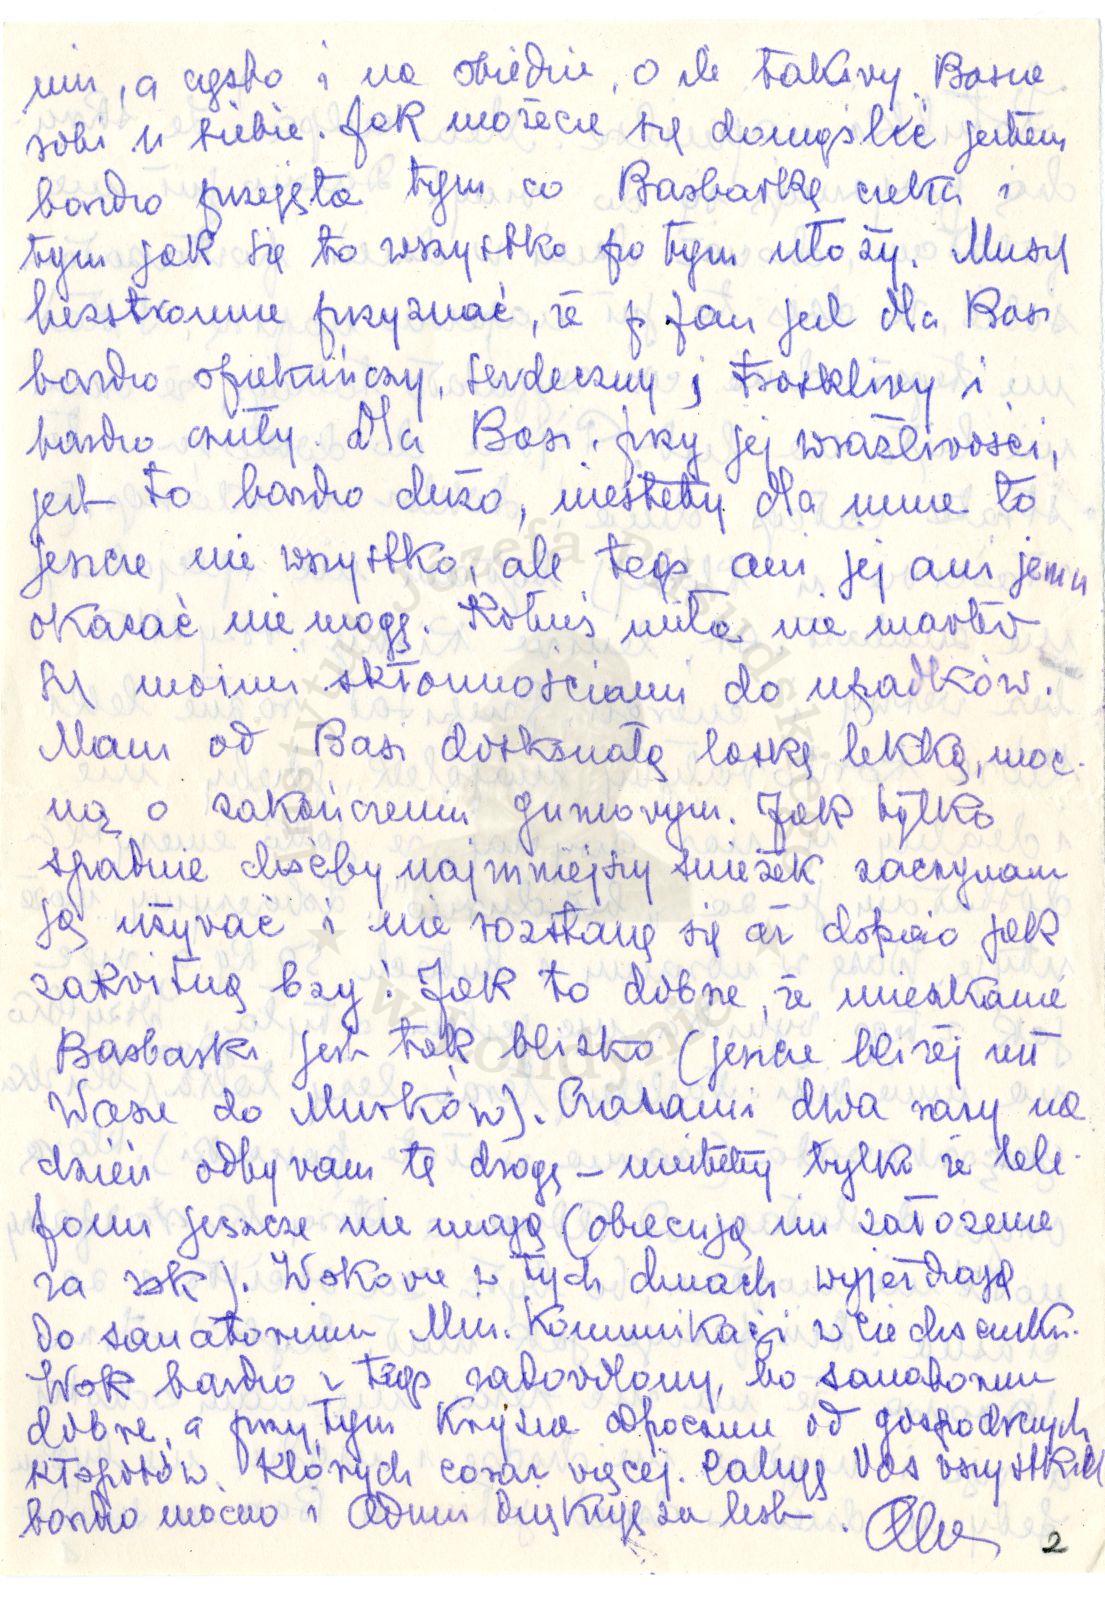 nim, a często i na obiedzie, o ile takivy Basia
robi u siebie. Jak możecie się domyślić jestem
bardzo przejęta tym co Barbarkę czeka i
tym jak się to wszystko po tym ułoży. Muszę
bezstronnie przyznać, że p. Jan jest dla Basi
bardzo opiekuńczy, serdeczny, troskliwy i
bardzo czuły. Dla Basi, przy jej wrażliwości,
jest to bardzo dużo, niestety dla mnie to
jeszcze nie wszystko, ale tego ani jej ani jemu
okazać nie mogę. Kotuś miła nie martw
się moimi skłonnościami do upadków.
Mam od Basi doskonałą laskę lekką, moc-
ną o zakończeniu gumowym. Jak tylko
spadnie choćby najmniejszy śnieżek zaczynam
ją używać i nie rozstanę się aż dopiero jak
zakwitną bzy! Jak to dobrze, że mieszkanie
Barbarki jest tak blisko (jeszcze bliżej niż
Wasze do Murków). Czasami dwa razy na
dzień odbywam tę drogę – niestety tylko że tele-
fonu jeszcze nie mają (obiecują im założenie
za rok). Wokowie w tych dniach wyjeżdżają
do sanatorium Min. Komunikacji w Ciechocinku.
Wok bardzo z tego zadowolony, bo sanatorium
dobre, a przy tym Krysia odpocznie od gospodarczych
kłopotów, których coraz więcej. Całuję Was wszystkich
bardzo mocno i Adrian dziękuję za list. Ola
2
Instytut Józefa Piłsudskiego
w Londynie